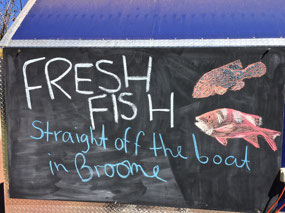 FRESH
FISH
Straight off the boat
in Broome